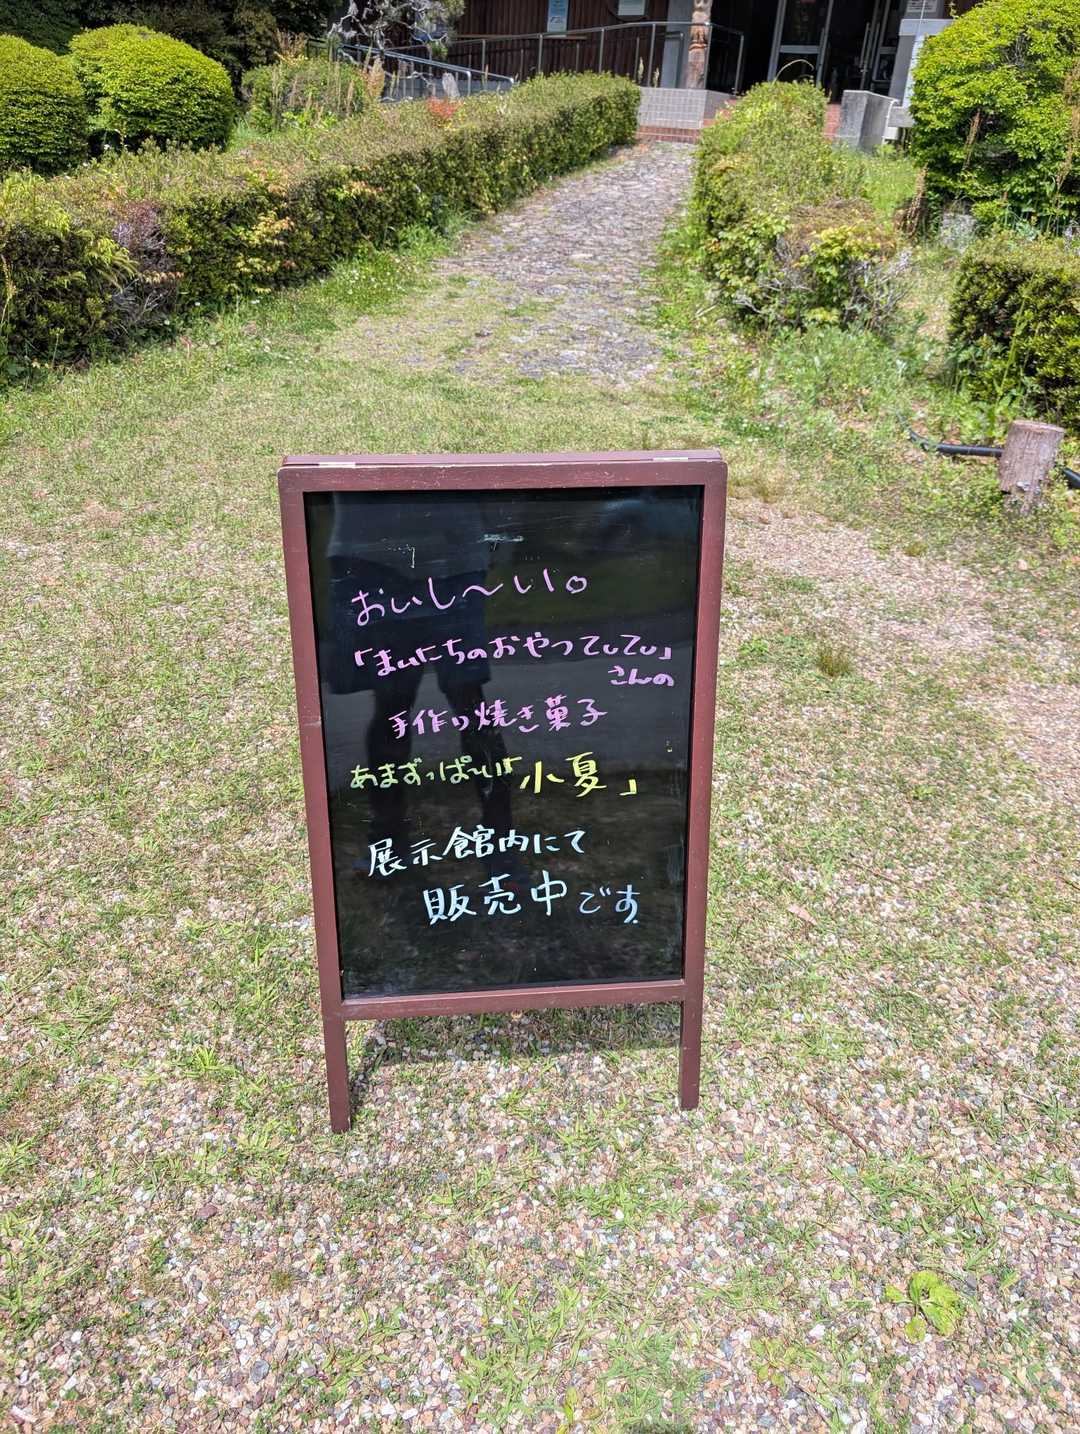 おいし〜い。
「まいにちのおやつてぃてぃ」
さんの
手作り焼き菓子
あまずっぱ〜い「小夏」
展示館内にて
販売中です